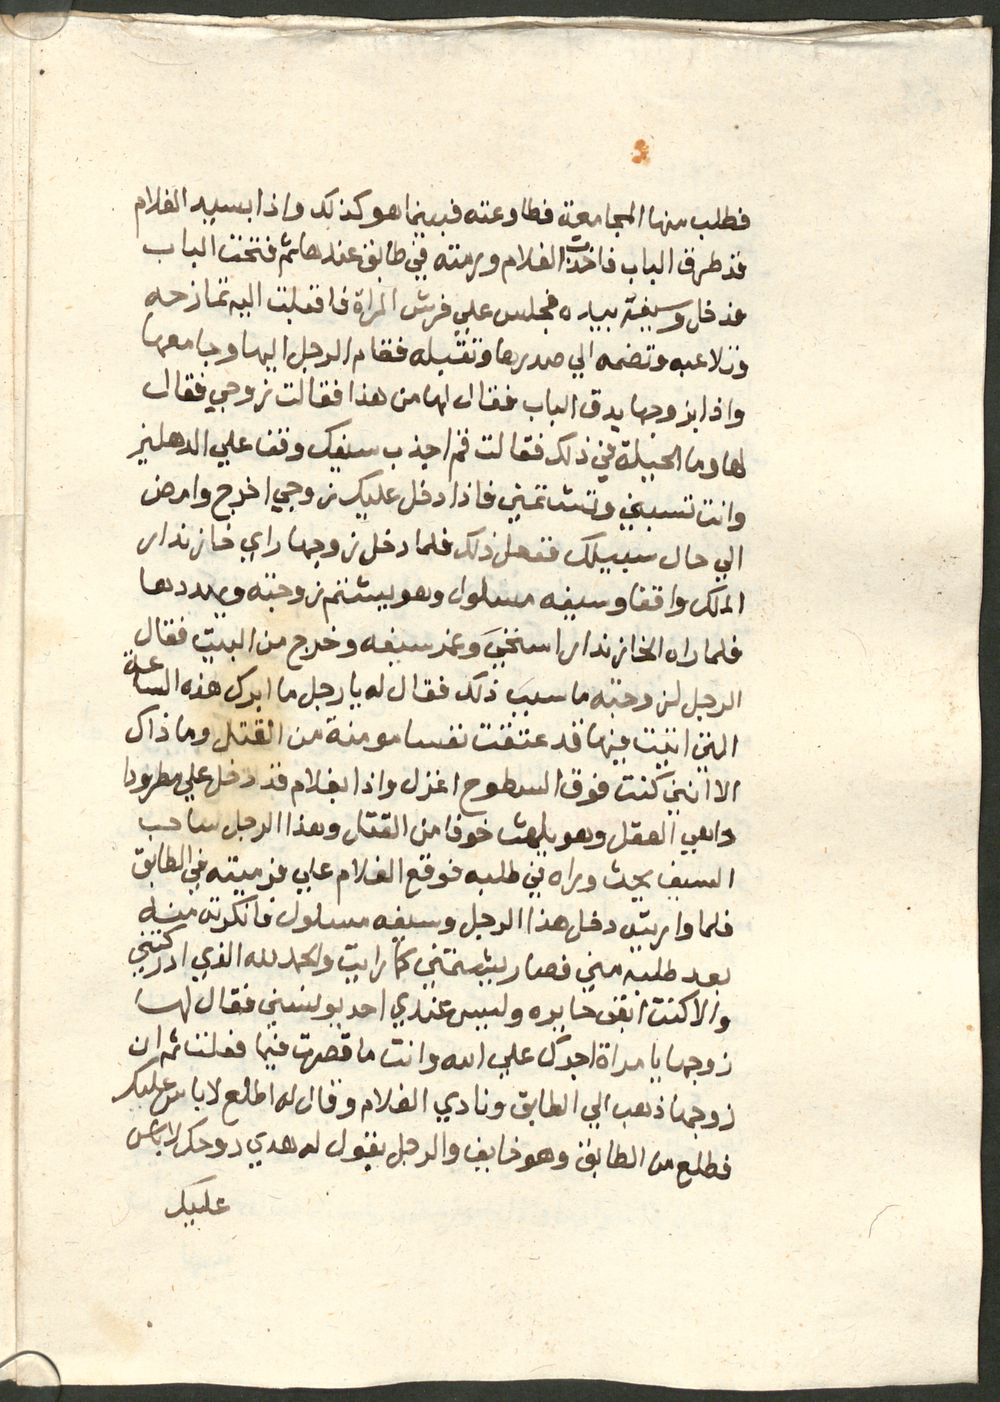 فطلب منها المجامعة فطاوعته فبينما هو كذلك واذا بسيد الغلام
قد طرق الباب فاخذت الغلام ورمته في طابق عندها ثم فتحت الباب
فدخل وسيفه بيده فجلس علي فرش المراة فاقبلت اليه تمازحه
وتلاعبه وتضمه الي صدرها وتقبله فقام الرجل اليها وجامعها
واذا بزوجها يدق الباب فقال لها من هذا فقالت زوجي فقال
لها وما الحيلة في ذلك فقالت قم اجذب سيفك وقف علي الدهليز
وانت تسبني وتشاتمني فاذا دخل عليك زوجي اخرج وامض
الي حال سبيلك ففعل ذلك فلما دخل زوجها راي خازندار
الملك واقفا وسيفه مسلول وهو يشتم زوجته ويهددها
فلما راه الخازندار استخي وغمد سيفه وخرج من البيت فقال
الرجل لزوجته ما سبب ذلك فقال له يا رجل ما ابرك هذه الساعة
التي اتيت فيها قد عتقت نفسا مومنة من القتل وما ذاك
الا انني كنت فوق السطوح اغزل واذا بغلام قد دخل علي مطرودا
داهي العقل وهو يلهث خوفا من القتل وهذا الرجل صاحب
السيف يجد وراه في طلبه فوقع الغلام علي فرميته في الطابق
فلما وا ريته دخل هذا الرجل وسيفه مسلول فانكرته منه
بعد طلبه مني فصار يشتمني كما رايت والحمد لله الذي ادركتني
والا كنت ابقي حايره وليس عندي احد يونسني فقال لها
زوجها يا مراة اجرك علي الله وانت ما قصرت فيما فعلت ثم ان
زوجها ذهب الي الطابق ونادي الغلام وقال له اطلع لا باس عليك
فطلع من الطابق وهو خايف والرجل يقول له هدي روحك لا باس
عليك